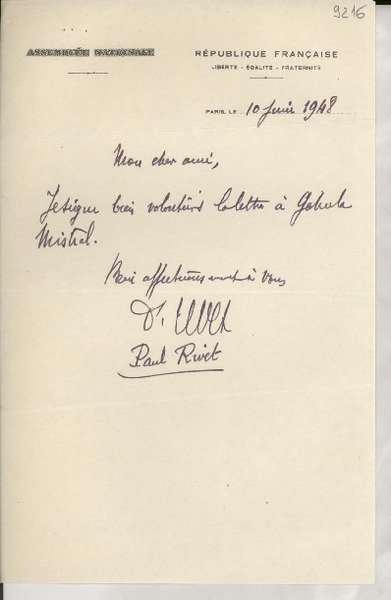 9216
ASSEMBLÉE NATIONALE
RÉPUBLIQUE FRANÇAISE
LIBERTÉ - ÉGALITÉ - FRATERNITÉ
PARIS, LE 10 juin 1948
Mon cher ami,
Je signe bien volontiers la lettre à Gabriela
Mistral.
Bien affectueusement à vous
Paul Rivet